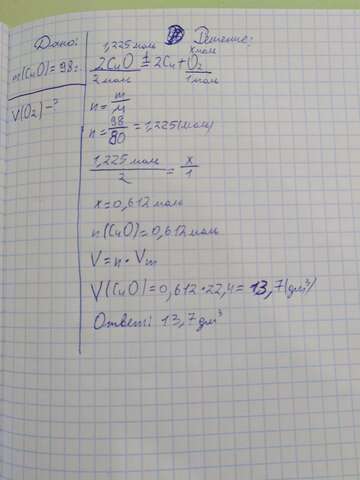 Дано:
m(CuO)=98г.
V(O₂)-?
Решение:
1,225 моль x моль
2CuO = 2Cu+O₂
2 моль 1 моль
n= m/M
n= 98/80 =1,225(моль)
1,225 моль/2 = x/1
x=0,612 моль
n(CuO)=0,612 моль
V=n·Vm
V(CuO)=0,612·22,4=13,7(дм³)
Ответ: 13,7 дм³